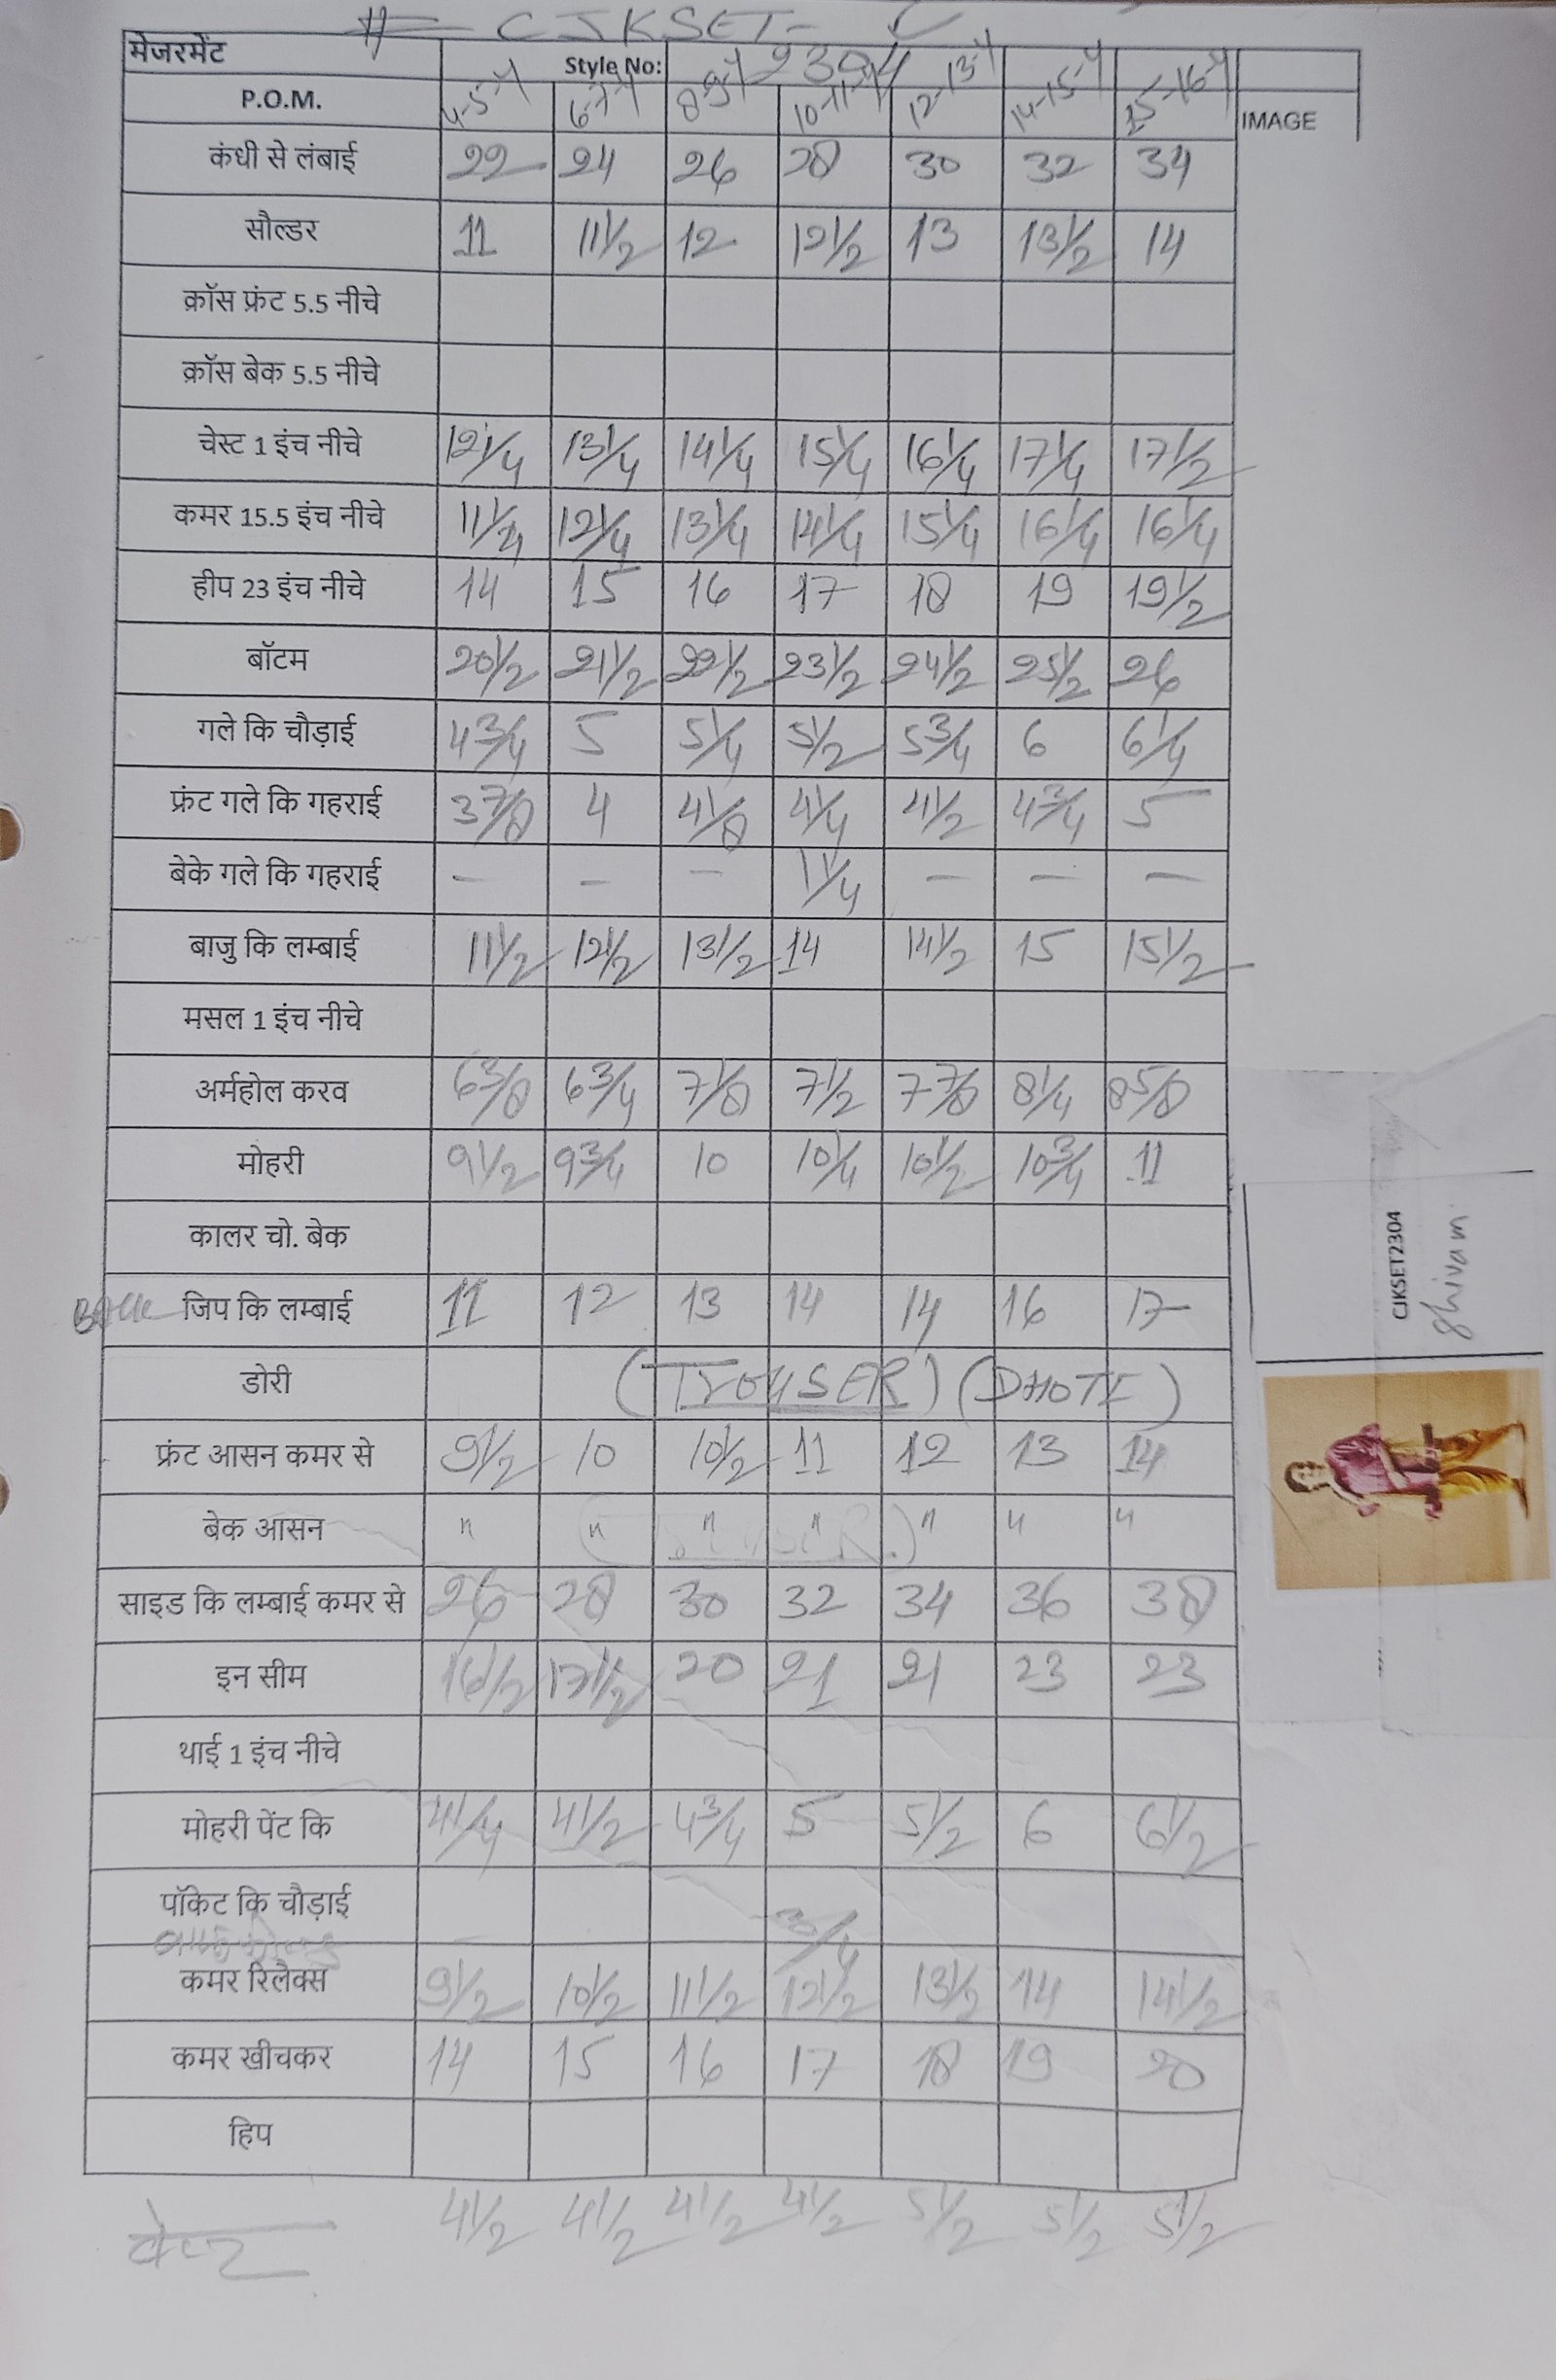 # CJKSET- ✓
मेजरमेंट Style No: 2304
P.O.M. 4-5-Y 6-7-Y 8-9-Y 10-11-Y 12-13-Y 14-15-Y 15-16-Y IMAGE
कंधी से लंबाई 22 24 26 28 30 32 34
सौल्डर 11 11 1/2 12 12 1/2 13 13 1/2 14
क्रॉस फ्रंट 5.5 नीचे
क्रॉस बेक 5.5 नीचे
चेस्ट 1 इंच नीचे 12 1/4 13 1/4 14 1/4 15 1/4 16 1/4 17 1/4 17 1/2
कमर 15.5 इंच नीचे 11 1/4 12 1/4 13 1/4 14 1/4 15 1/4 16 1/4 16 1/4
हीप 23 इंच नीचे 14 15 16 17 18 19 19 1/2
बॉटम 20 1/2 21 1/2 22 1/2 23 1/2 24 1/2 25 1/2 26
गले कि चौड़ाई 4 3/4 5 5 1/4 5 1/2 5 3/4 6 6 1/4
फ्रंट गले कि गहराई 3 7/8 4 4 1/8 4 1/4 4 1/2 4 3/4 5
बेके गले कि गहराई — — — 1 1/4 — — —
बाजु कि लम्बाई 11 1/2 12 1/2 13 1/2 14 14 1/2 15 15 1/2
मसल 1 इंच नीचे
अर्महोल करव 6 3/8 6 3/4 7 1/8 7 1/2 7 7/8 8 1/4 8 5/8
मोहरी 9 1/2 9 3/4 10 10 1/4 10 1/2 10 3/4 11
कालर चो. बेक
जिप कि लम्बाई 11 12 13 14 14 16 17
डोरी (TroUSER) (DHOTI)
फ्रंट आसन कमर से 9 1/2 10 10 1/2 11 12 13 14
बेक आसन " " " " " " "
साइड कि लम्बाई कमर से 26 28 30 32 34 36 38
इन सीम 16 1/2 17 1/2 20 21 21 23 23
थाई 1 इंच नीचे
मोहरी पेंट कि 4 1/4 4 1/2 4 3/4 5 5 1/2 6 6 1/2
पॉकेट कि चौड़ाई
3/4
कमर रिलैक्स 9 1/2 10 1/2 11 1/2 12 1/2 13 1/2 14 14 1/2
कमर खीचकर 14 15 16 17 18 19 20
हिप
बेल्ट 4 1/2 4 1/2 4 1/2 4 1/2 5 1/2 5 1/2 5 1/2
CJKSET2304
Shivam